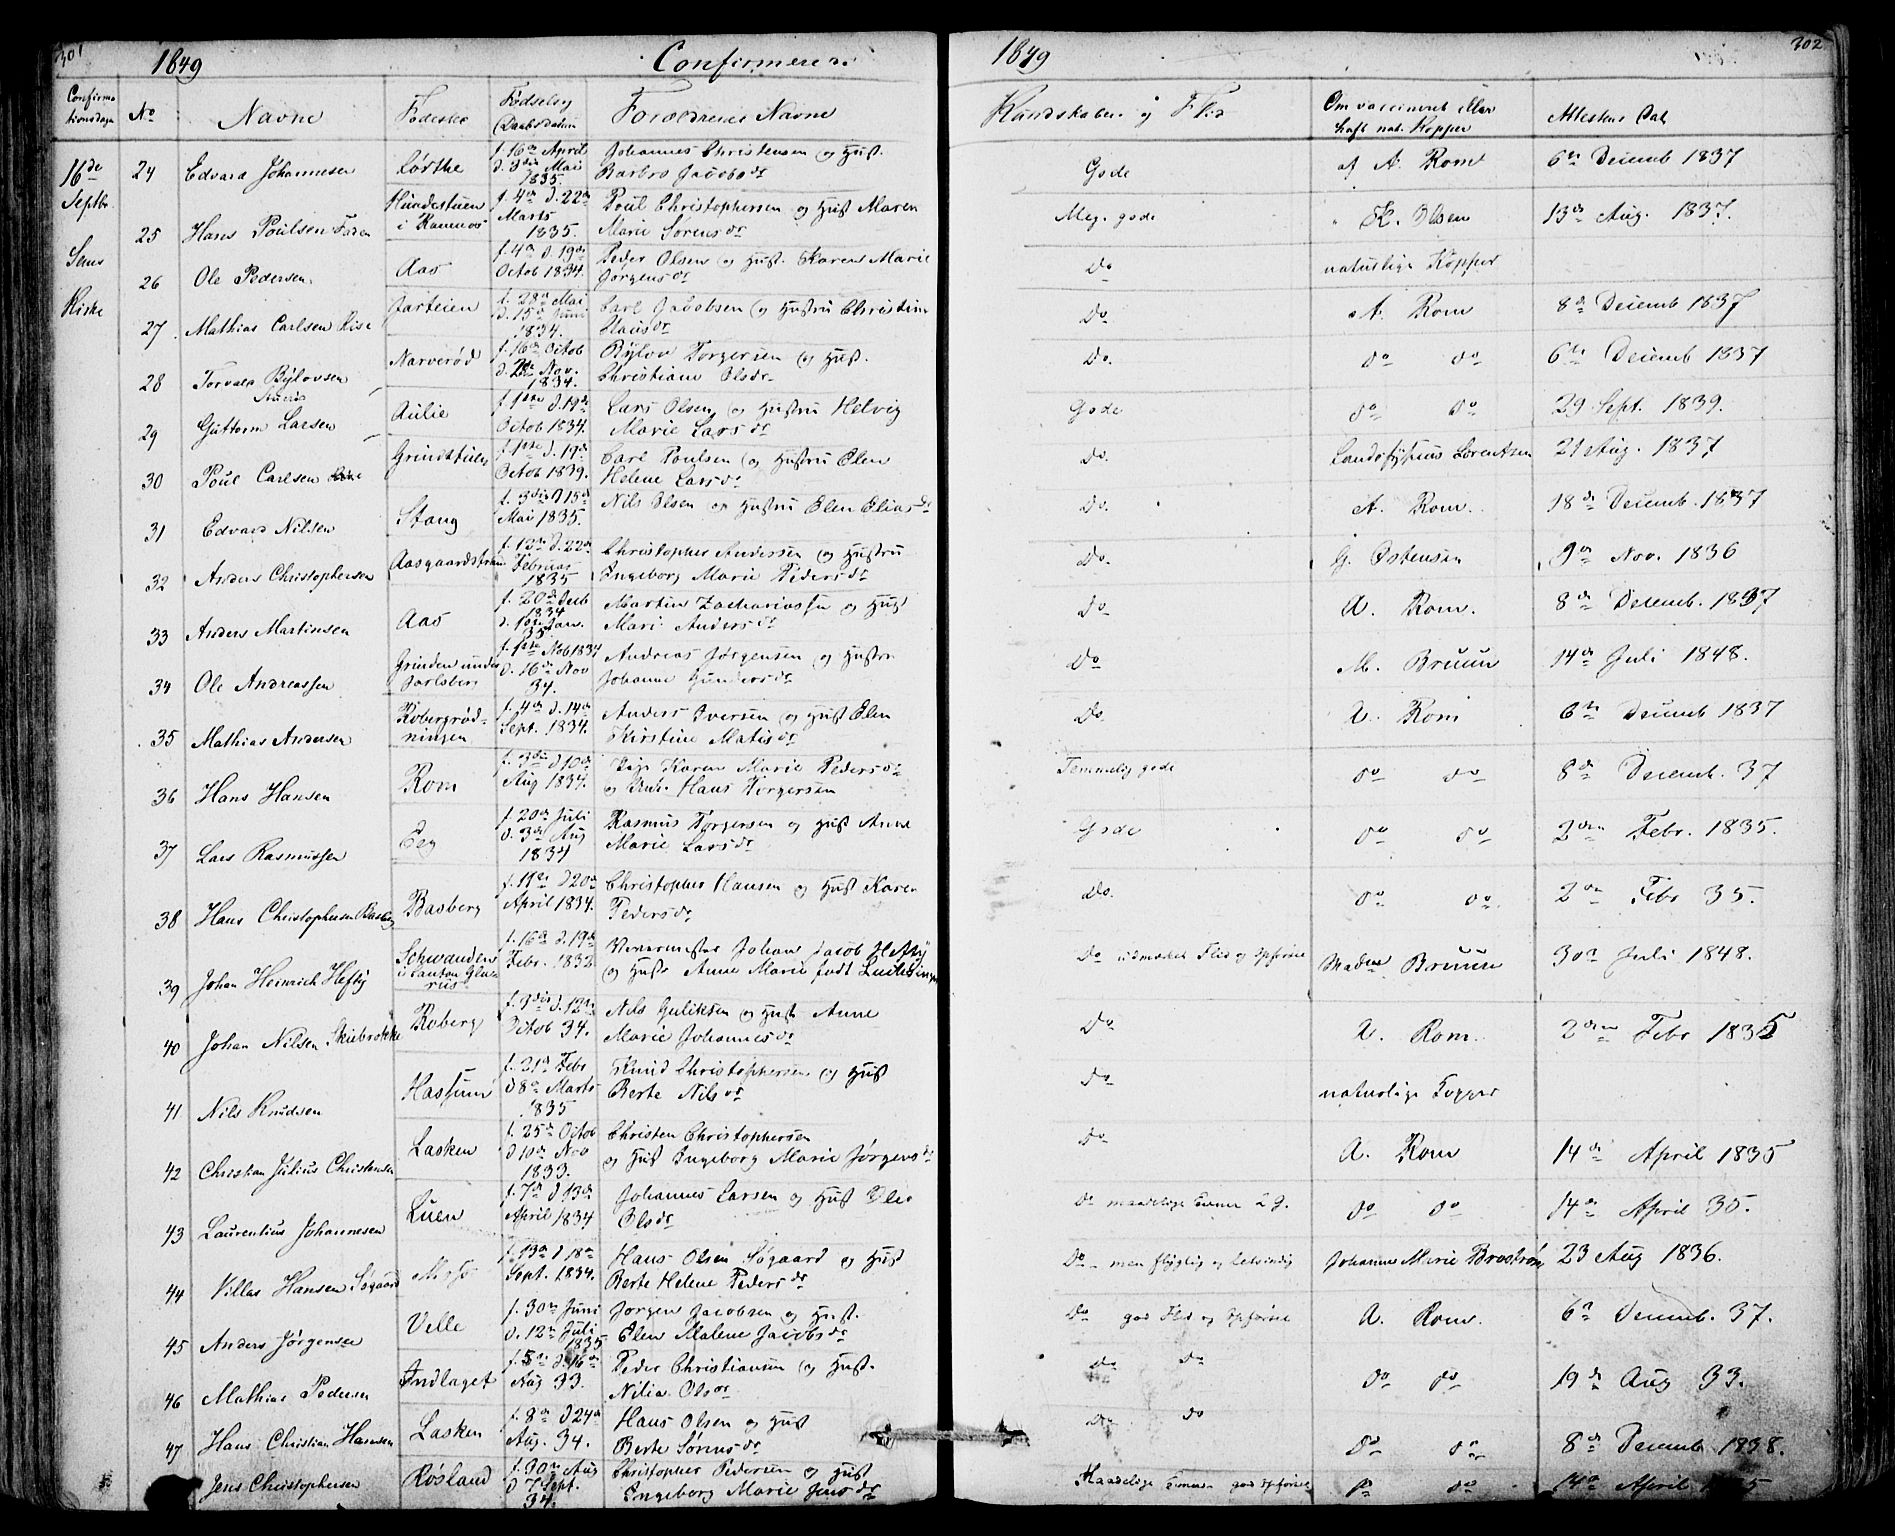 301
1849
Confirmere
1849
302
Confirma-
tionsdage
No
Navne
Fødested
Fødsels og
Daabsdatum
Forældrenes Navne
Kundskaber og Flid
Om vaccineret eller
haft nat. Kopper
Attestens Dat
16de
Septbr.
Sems
Kirke
24 Edvard Johannesen
f. 16de April
d. 3die Mai
1835
Johannes Christensen og Hust.
Barbro Jacobsdr
Gode
af A. Rom
6te Decemb 1837
25 Hans Poulsen
Hundestuen
i Ramnæs
f. 4de d. 22de
Marts
1835.
Poul Christophersen og Hust Maren
Marie Sørensdr
Meg. gode
K. Olsen
13de Aug. 1837.
26 Ole Pedersen
Aas
f. 4de d. 19de
Octob 1834.
Peder Olsen og Hust. Karen Marie
Jørgensdr
Do
naturlige Kopper
27 Mathias Carlsen
Jarteien
f. 28de Mai
d. 15de Juni
1834.
Carl Jacobsen og Hustru Christine
Hansdr
Do
A. Rom
8de Decemb 1837
28 Torvald Bylovsen
Narverød
f. 16de Octob
Nov.
1834.
Bylov Torgersen og Hust.
Christiane Olsdr
Do.
do do
6te Decemb 1837
29 Guttorm Larsen
Aulie
f. 1ste d. 19de
Octob 1834.
Lars Olsen og Hustru Helvig
Marie Larsdr
Gode
do do
29 Sept. 1839.
30 Poul Carlsen
f. 1ste d. 19de
Octob 1839.
Carl Poulsen og Hustru Elen
Helene Larsdr
Do.
Landsfysicus Lorentsen
21 Aug. 1837
31 Edvard Nilsen
Stang
f. 3die d 15de
Mai 1835.
Nils Olsen og Hustru Elen Eliasdr
Do.
A. Rom.
18de Decemb. 1837
32 Anders Christophersen
Aasgaardstrand
f. 12te d. 22de
Februar
1835
Christopher Andersen og Hustru
Ingeborg Marie Pedersdr
Do.
G. Ostensen
9de Nov. 1836
33 Anders Martinsen
Aas
f. 20de Decb
1834
Jan.
35
Martin Zachariassen og Hust
Mari Andersdr
Do
A. Rom.
8de Decemb. 1837
34 Ole Andreassen
Grinden under
Jarlsberg
f. 1ste Nob 1834
d. 16de Nov
34.
Andreas Jørgensen og Hustru
Johanne Gundersdr
Do
M. Bruun
14de Juli 1848.
35 Mathias Andersen
Robergrød-
ningen
f. 4de d. 14de
Sept. 1834.
Anders Iversen og Hust Elen
Kirstine Matisdr
Do.
A. Rom
6te Decemb 1837
36 Hans Hansen
Rom
f. 3die d 10de
Aug 1834.
Pige Karen Marie Pedersdr
og Hans Torgersen
Temmelig gode
do do
8de Decemb. 37
37 Lars Rasmussen
Eeg
f. 20de Juli
d. 3die Aug
1834
Rasmus Torgersen og Hust Anne
Marie Larsdr
Gode
do do
2den Febr. 1835.
38 Hans Christophersen Basberg
Basberg
f. 19de d 20de
April 1834.
Christopher Hansen og Hust Karen
Pedersdr
Do.
do do.
2den Febr 35.
39 Johan Heinrich Hefty
Schwanden
i Canton Gla-
rus
f. 16de d. 19de
Febr. 1832.
Johan Jacob Hefty
og Hustr Anne Marie født
Do udmærket Flid og Opførsel
Madme Bruun
30de Juli 1848.
40 Johan Nilsen
Roberg
f. 3die d. 12te
Octob 34.
Nils Guliksen og Hust Anne
Marie Johannesdr
Do
A. Rom.
2den Febr 1835
41 Nils Knudsen
Hassum
f. 21de Febr
d 8de Marts
1835
Knud Christophersen og Hust
Berte Nilsdr
Do
naturlige Kopper
42 Christian Julius Christensen
Lasken
f. 25de Octob
d 10de Nov
1833.
Christen Christophersen
og Hust Ingeborg Marie Jørgensdr
Do
A. Rom
14de April 1835
43 Laurentius Johannesen
Luen
f. 7de d 13de
April 1834
Johannes Larsen og Hust
Olsdr
Do maadelige Evner
do do
14de April 35.
44 Villas Hansen Søgaard
f. 13de d 18de
Sept. 1834.
Hans Olsen Søgaard og Hust
Berte Helene Pedersdr
Do men flygtig og letsindig
Johanne Marie Brostrøm
23 Aug 1836.
45 Anders Jørgensen
Velle
f. 30te Juni
d. 12te Juli
1835
Jørgen Jacobsen og Hust.
Elen Malene Jacobsdr
Do god Flid og Opførsel
A. Rom.
6te Decemb. 37.
46 Mathias Pedersen
Indlaget
f. 5te d. 16de
Aug 33.
Peder Christiansen og Hust.
Nilia Olsdr
Do Do
do do
19de Aug 33.
47 Hans Christian Hansen
Lasken
f. 8de d 24de
Aug. 34.
Hans Olsen og Hust
Berte Sørensdr
Do. do
do do
8de Decemb 1838.
Jens Christophersen
Røsland
f. 30te Aug
d 7 Sept.
34.
Christopher Pedersen og Hust
Ingeborg Marie Jensdr
Maadelige Evner god Opførsel
do do
14de April